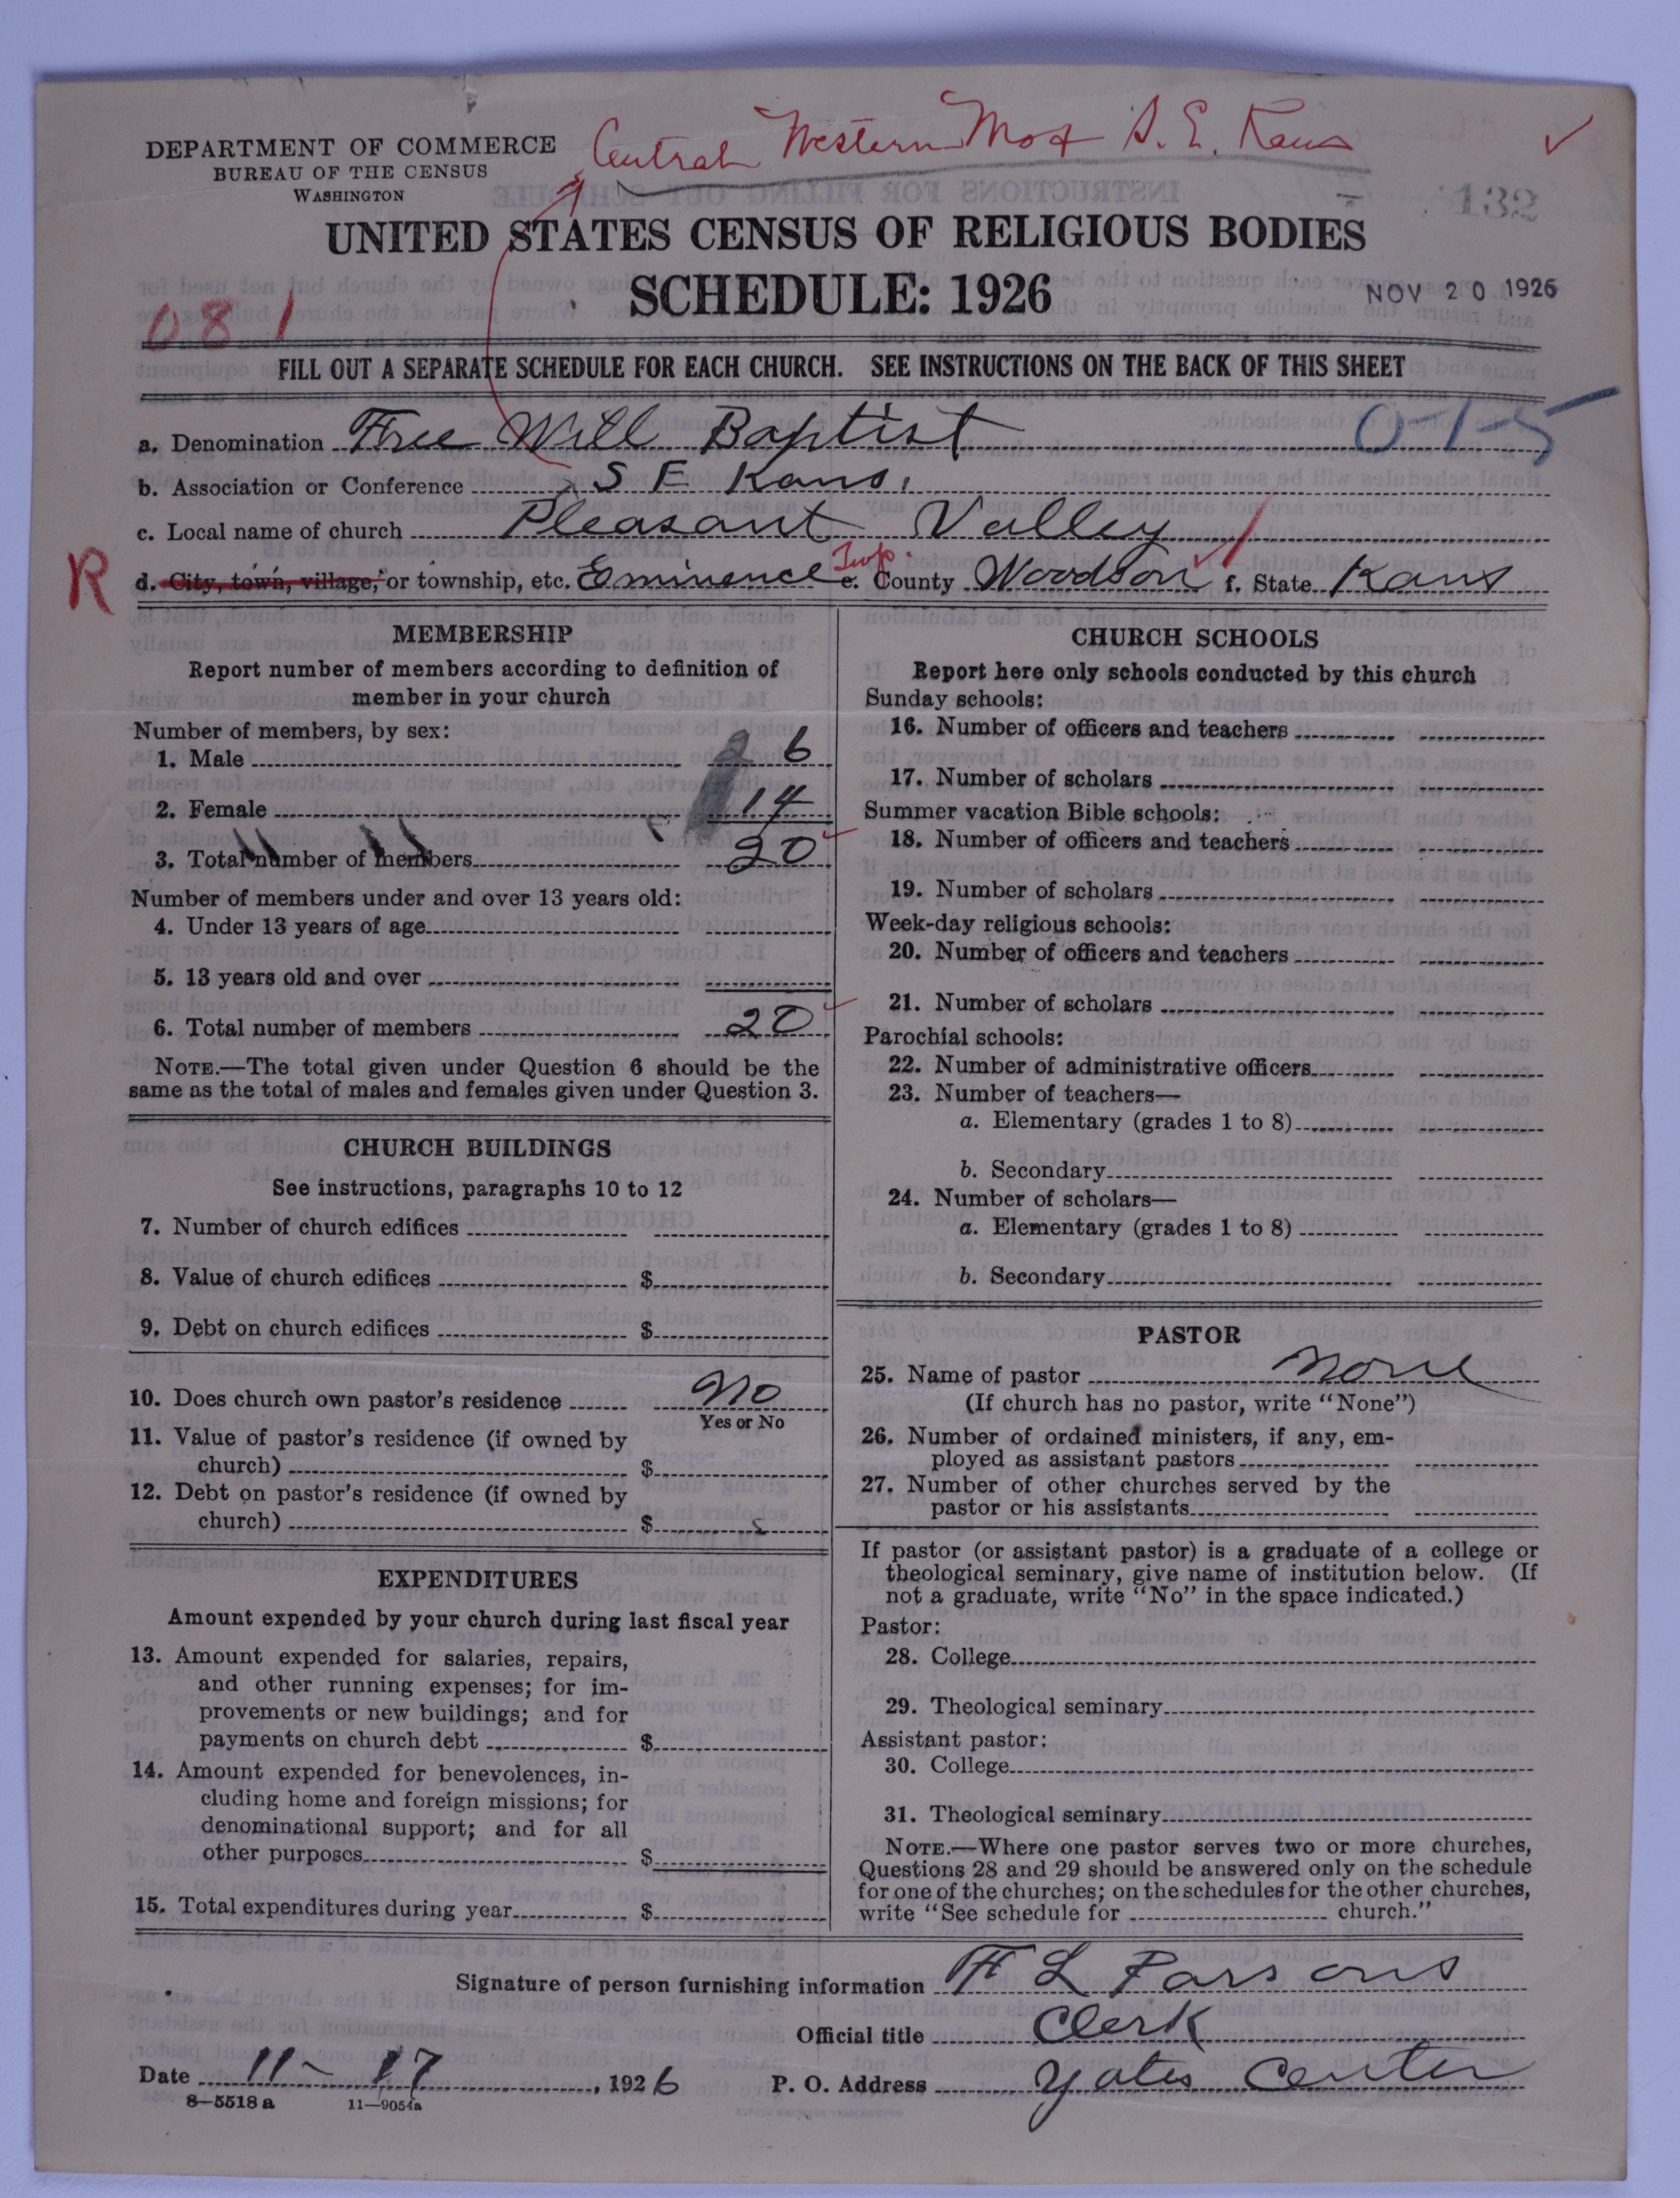 Central Western Mo & S. E. Kans
DEPARTMENT OF COMMERCE
BUREAU OF THE CENSUS
WASHINGTON
132
UNITED STATES CENSUS OF RELIGIOUS BODIES
SCHEDULE: 1926
NOV 20 1926
081
FILL OUT A SEPARATE SCHEDULE FOR EACH CHURCH. SEE INSTRUCTIONS ON THE BACK OF THIS SHEET
a. Denomination Free Will Baptist 0-1-5
b. Association or Conference S E Kans.
c. Local name of church Pleasant Valley
R d. City, town, village, or township, etc. Eminence Twp. e. County Woodson f. State Kans
MEMBERSHIP
Report number of members according to definition of
member in your church
Number of members, by sex:
1. Male 6
2. Female 14
3. Total number of members 20
Number of members under and over 13 years old:
4. Under 13 years of age
5. 13 years old and over
6. Total number of members 20
NOTE.—The total given under Question 6 should be the
same as the total of males and females given under Question 3.
CHURCH BUILDINGS
See instructions, paragraphs 10 to 12
7. Number of church edifices
8. Value of church edifices $
9. Debt on church edifices $
10. Does church own pastor's residence No
Yes or No
11. Value of pastor's residence (if owned by
church) $
12. Debt on pastor's residence (if owned by
church) $
EXPENDITURES
Amount expended by your church during last fiscal year
13. Amount expended for salaries, repairs,
and other running expenses; for im-
provements or new buildings; and for
payments on church debt $
14. Amount expended for benevolences, in-
cluding home and foreign missions; for
denominational support; and for all
other purposes $
15. Total expenditures during year $
CHURCH SCHOOLS
Report here only schools conducted by this church
Sunday schools:
16. Number of officers and teachers
17. Number of scholars
Summer vacation Bible schools:
18. Number of officers and teachers
19. Number of scholars
Week-day religious schools:
20. Number of officers and teachers
21. Number of scholars
Parochial schools:
22. Number of administrative officers
23. Number of teachers—
a. Elementary (grades 1 to 8)
b. Secondary
24. Number of scholars—
a. Elementary (grades 1 to 8)
b. Secondary
PASTOR
25. Name of pastor None
(If church has no pastor, write "None")
26. Number of ordained ministers, if any, em-
ployed as assistant pastors
27. Number of other churches served by the
pastor or his assistants
If pastor (or assistant pastor) is a graduate of a college or
theological seminary, give name of institution below. (If
not a graduate, write "No" in the space indicated.)
Pastor:
28. College
29. Theological seminary
Assistant pastor:
30. College
31. Theological seminary
NOTE.—Where one pastor serves two or more churches,
Questions 28 and 29 should be answered only on the schedule
for one of the churches; on the schedules for the other churches,
write "See schedule for church."
Signature of person furnishing information H L Parsons
Official title Clerk
Date 11-17, 1926 P. O. Address Yates Center
8—5518a 11—9054a